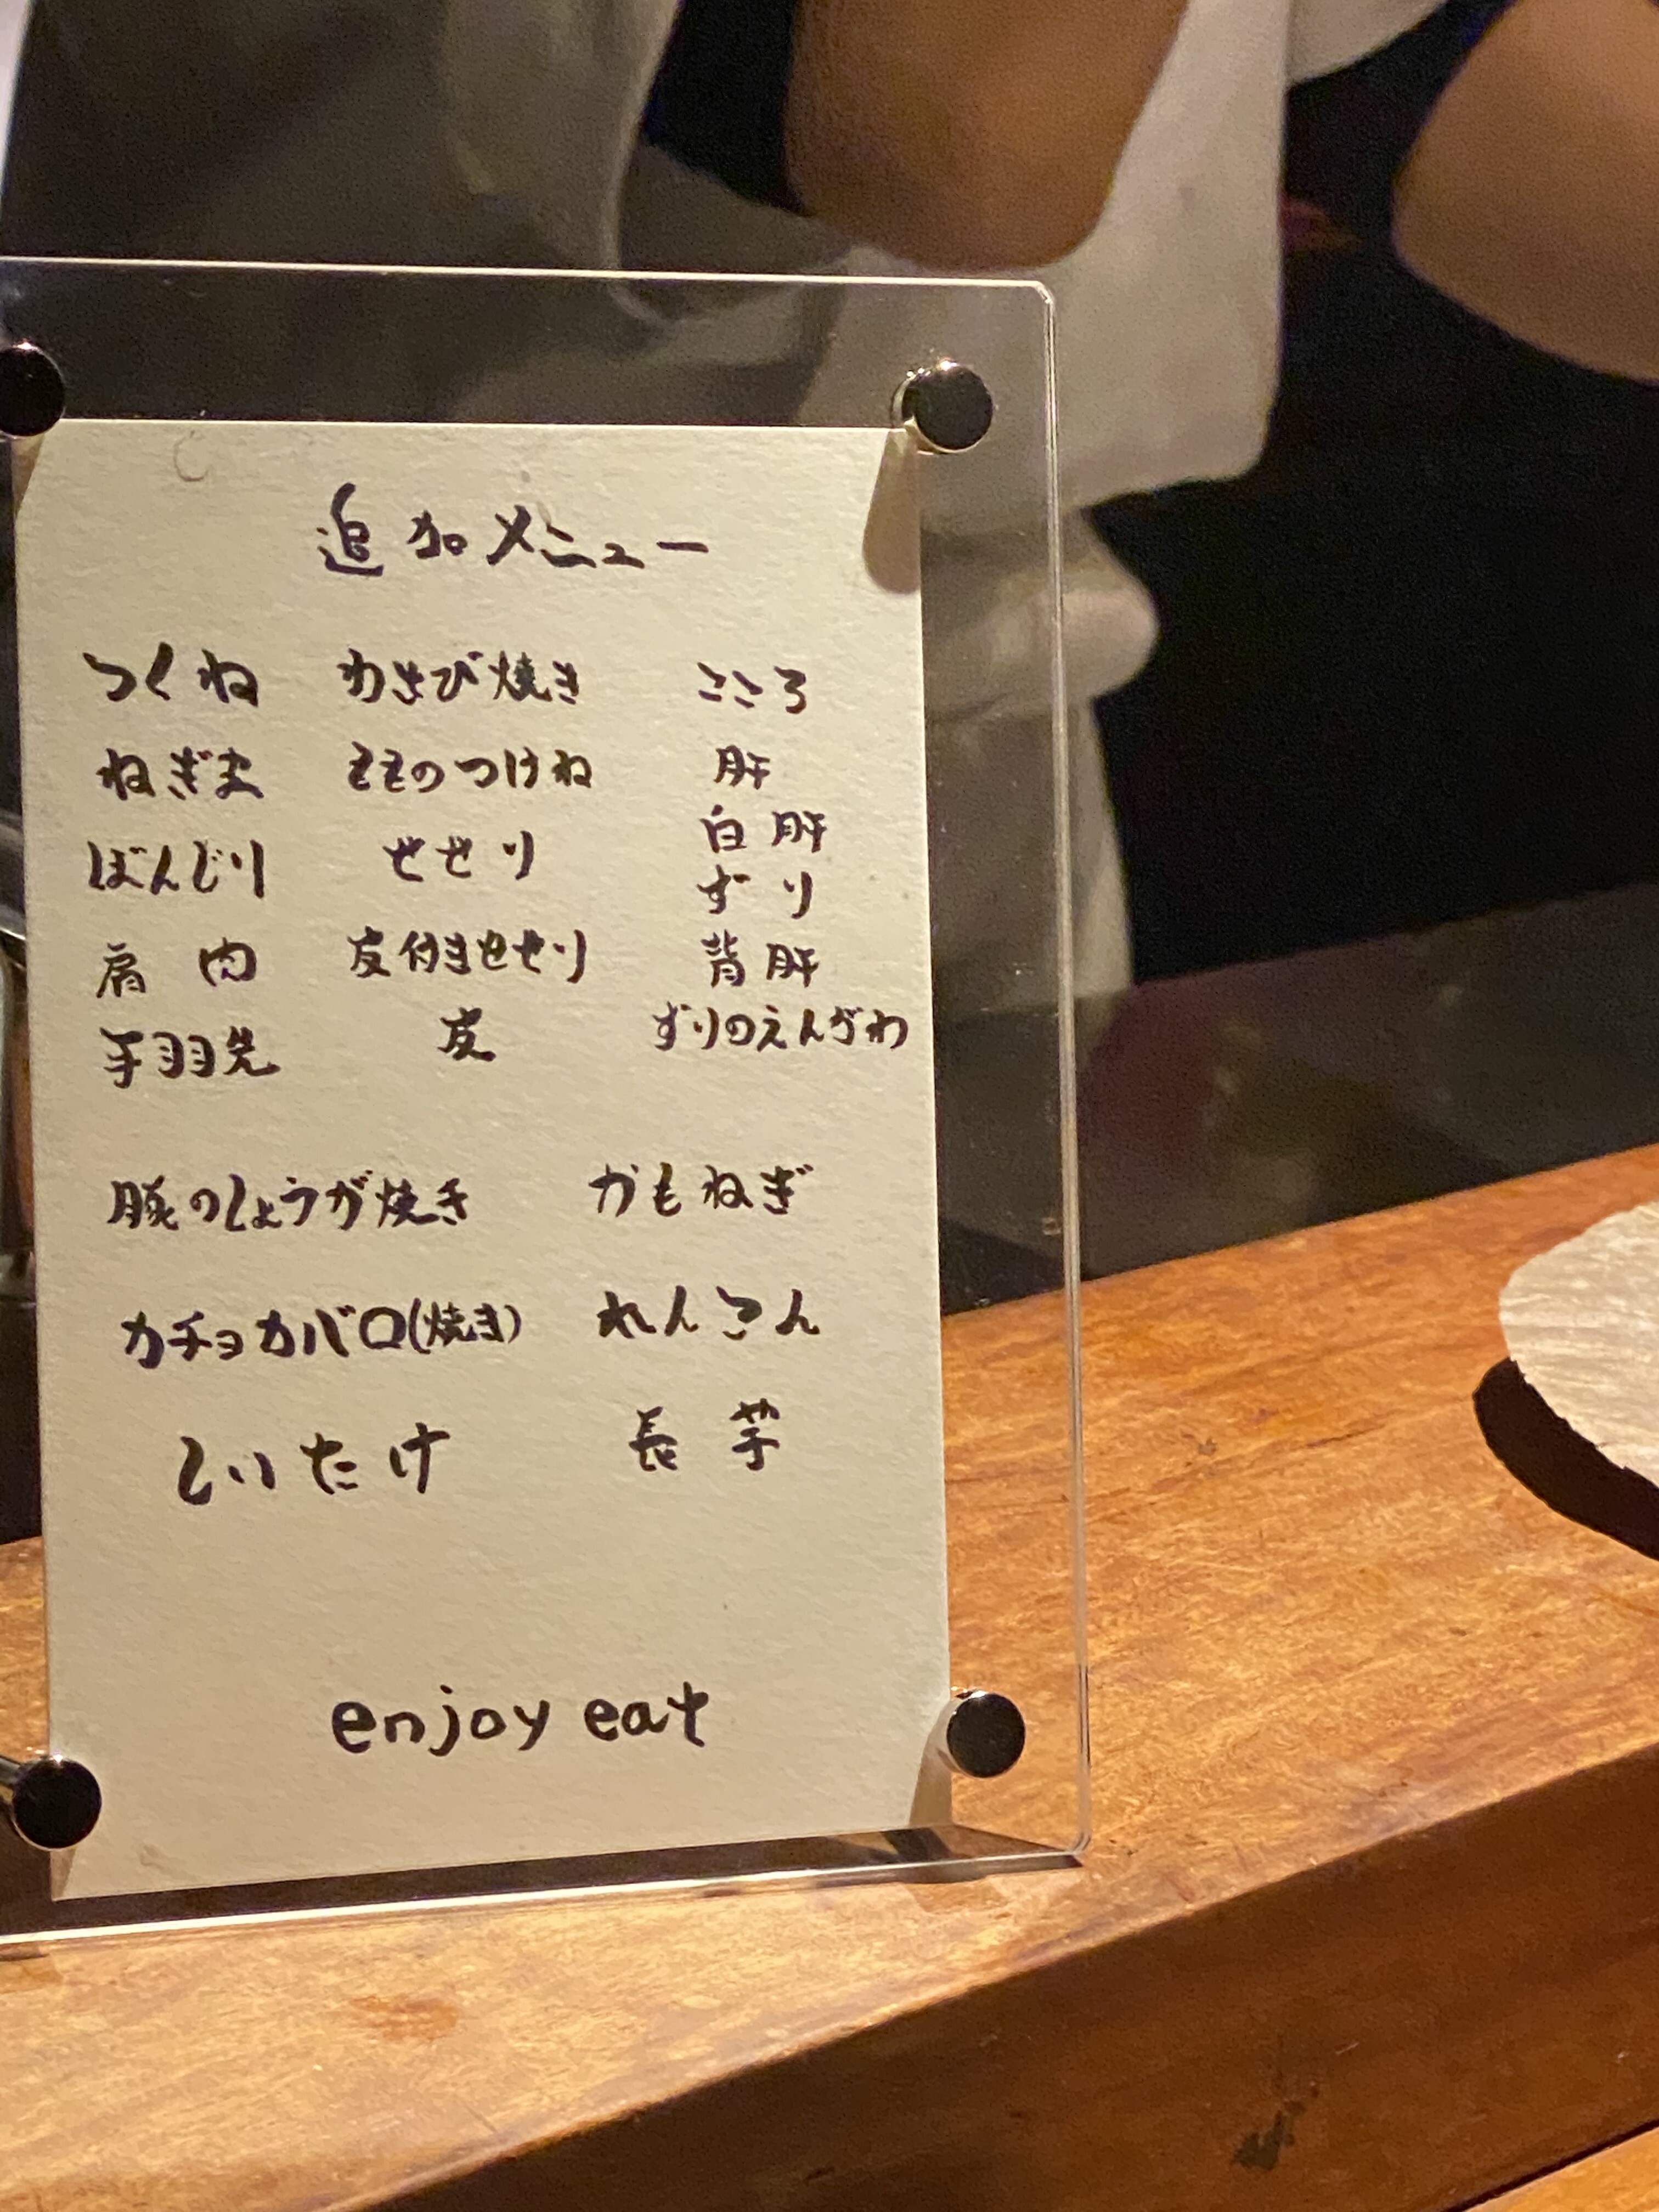 追加メニュー
つくね わさび焼き こころ
ねぎま もものつけね 肝
白肝
ぼんじり せせり
ずり
肩肉 皮付きせせり 背肝
手羽先 皮 ずりのえんがわ
豚のしょうが焼き かもねぎ
カチョカバロ(焼き) れんこん
しいたけ 長芋
enjoy eat